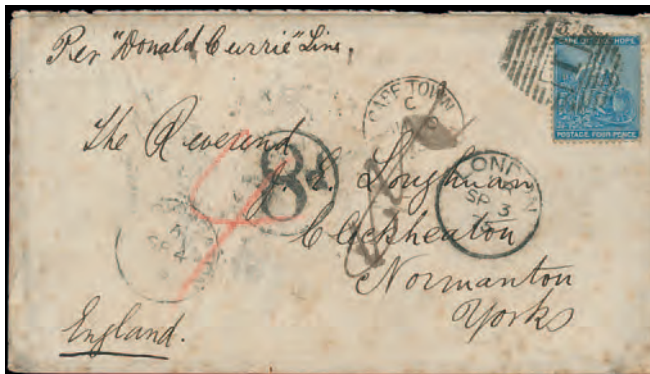 Per "Donald Currie" Line.
CAPE OF GOOD HOPE
POSTAGE. FOUR-PENCE
CAPE TOWN
C
The Reverend
8d
LONDON
SP 3
J. E. Loughman
Cleckheaton
SP 4
Normanton
Yorks
England.